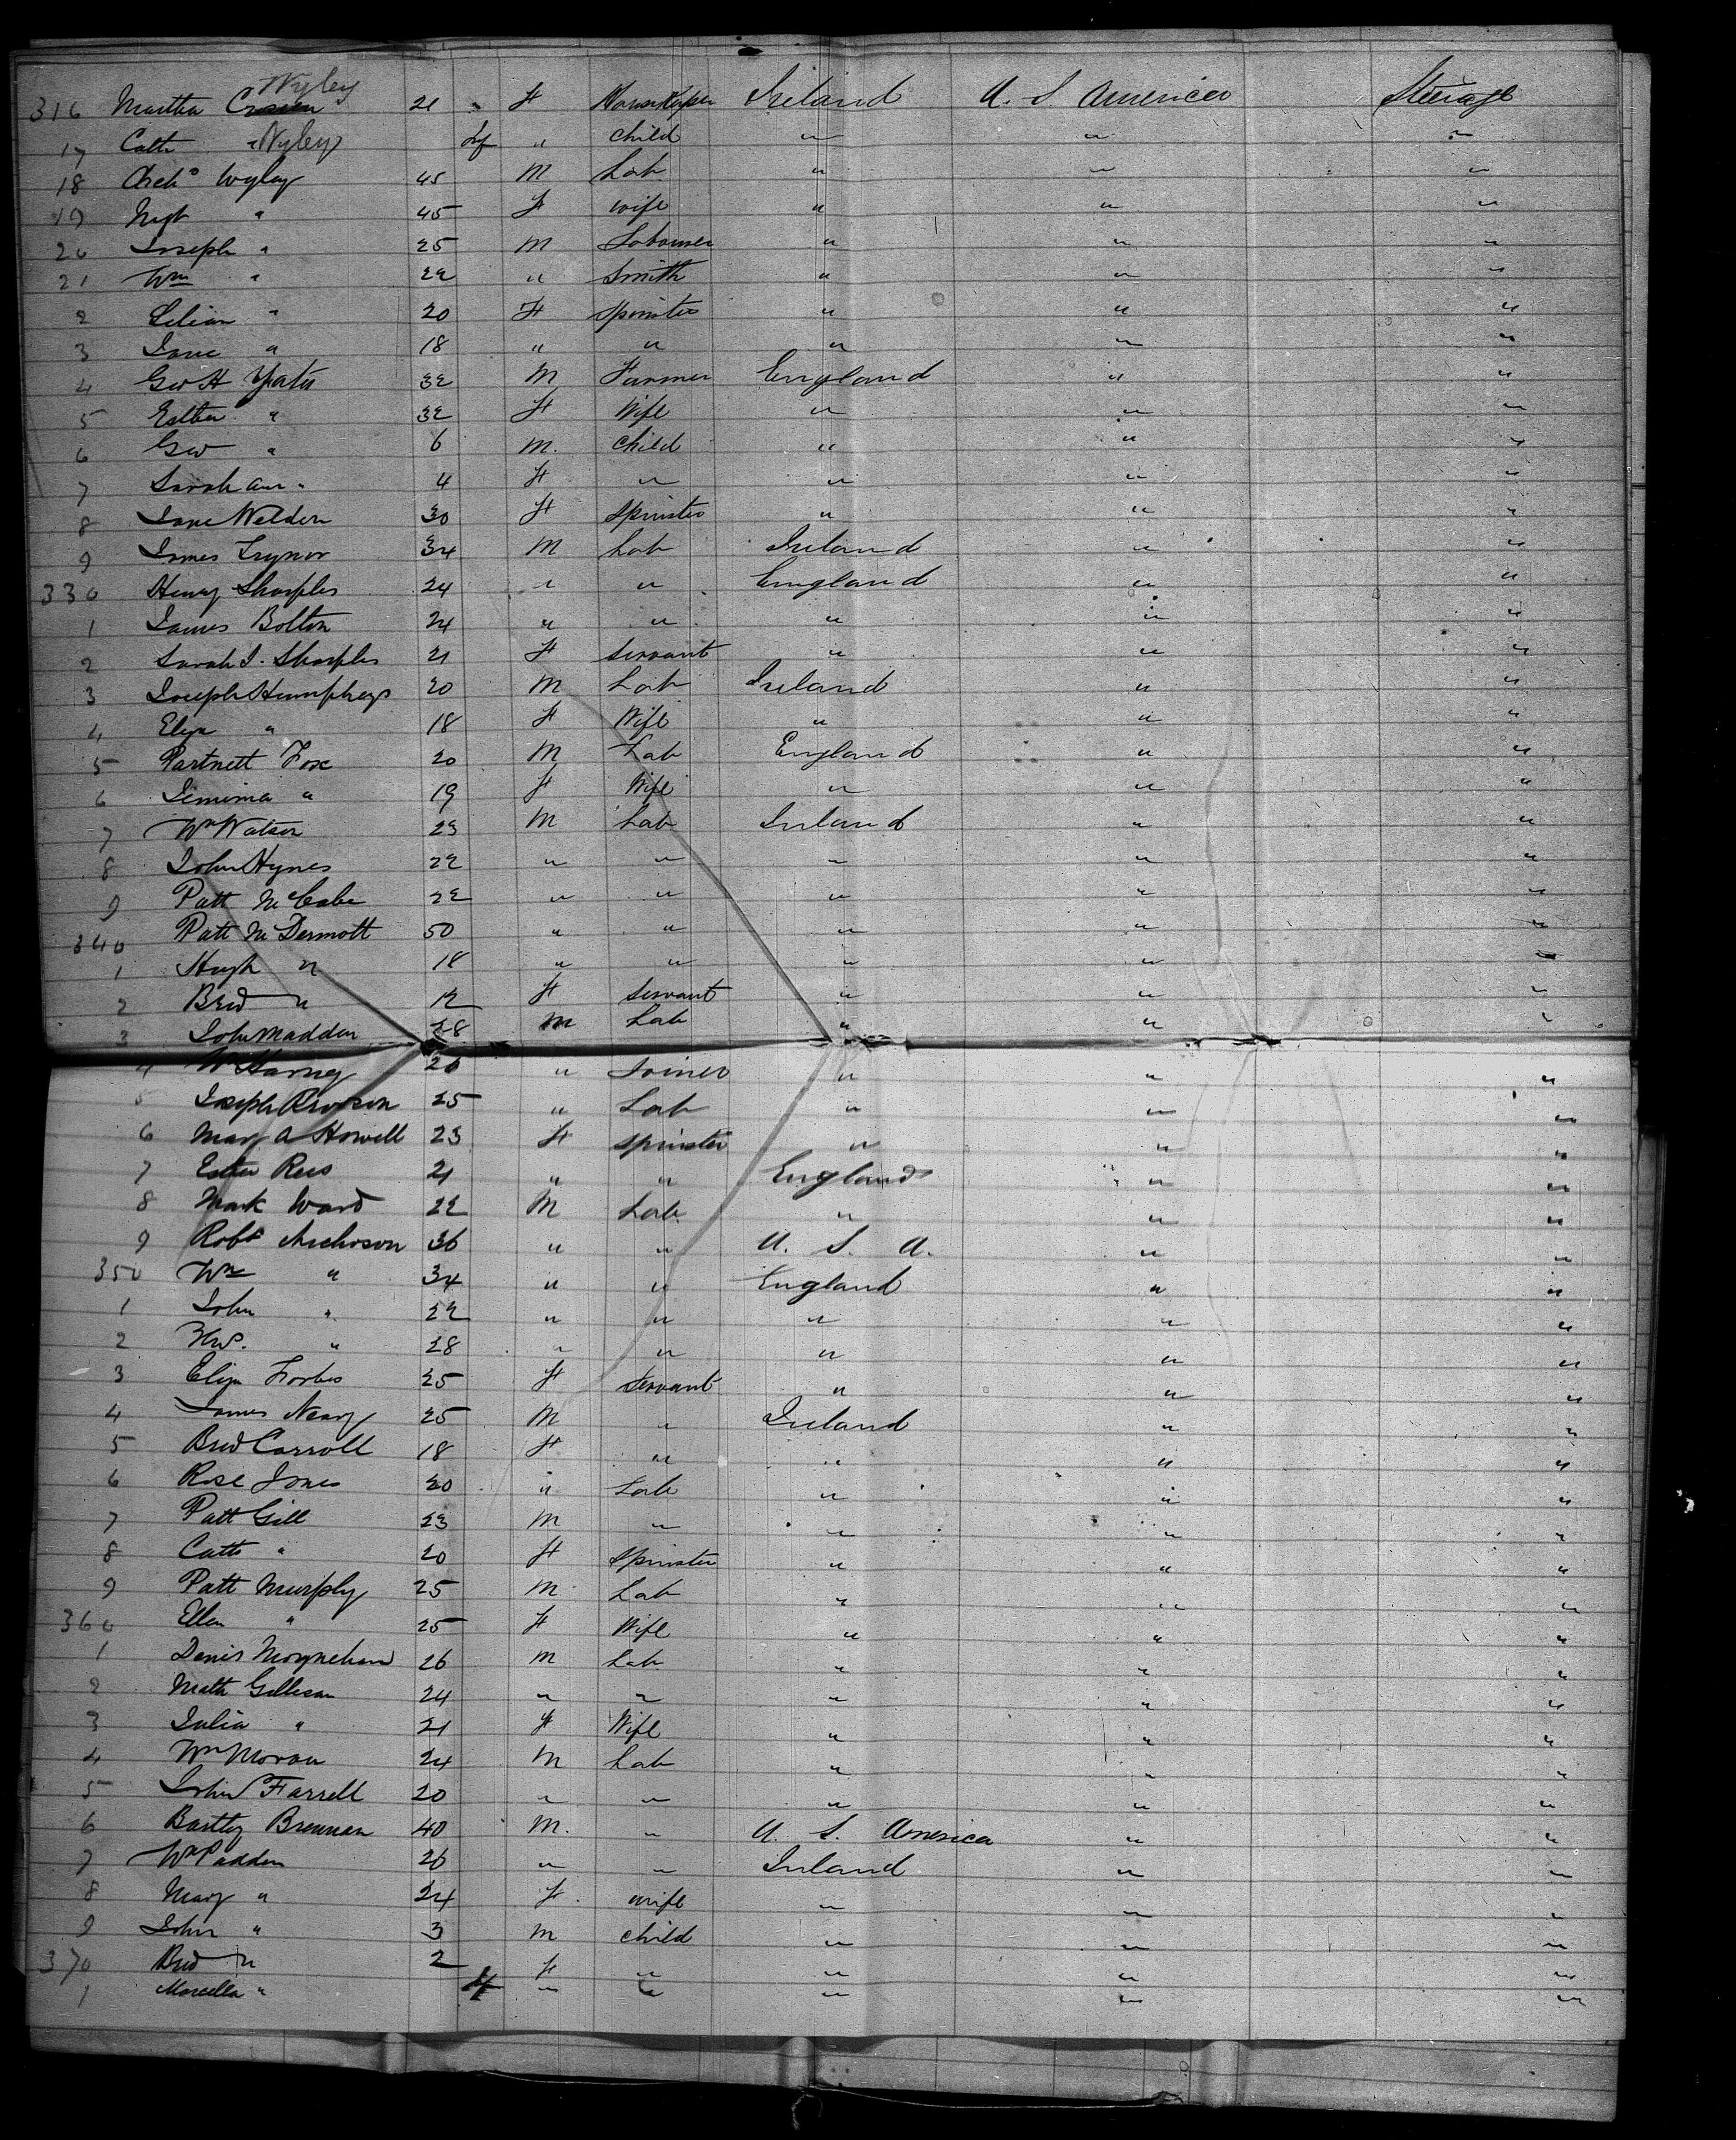 Wyley
316 Martha 21 " F Housekeeper Ireland U. S. America Steerage
17 Cath " Wyley Inf " child " " "
18 Archd Wyley 45 M Lab " " "
19 Mgt " 45 F wife " " "
20 Joseph " 25 M Labourer " " "
21 Wm " 22 " Smith " " "
2 Lilian " 20 F Spinster " " "
3 Jane " 18 " " " " "
4 Geo H Yates 32 M Farmer England " "
5 Esther " 32 F Wife " " "
6 Geo " 6 M. Child " " "
7 Sarah Ann " 4 F " " " "
8 Jane Weldon 30 F Spinster " " "
9 James Trynor 34 M Lab Ireland " "
330 Henry Sharples 24 " " England " "
1 James Bolton 24 " " " " "
2 Sarah J. Sharples 21 F Servant " " "
3 Joseph Humphreys 20 M Lab Ireland " "
4 Eliza " 18 F Wife " " "
5 Partnett Fox 20 M Lab England " "
6 Jemima " 19 F Wife " " "
7 Wm Watson 23 M Lab Ireland " "
8 John Hynes 22 " " " " "
9 Patt McCabe 22 " " " " "
340 Patt McDermott 50 " " " " "
1 Hugh " 18 " " " " "
2 Brid " 12 F Servant " " "
3 John Madden 28 M Lab " " "
4 W Harney 20 " Joiner " " "
5 Joseph 25 " Lab " " "
6 Mary A Howell 23 F Spinster " " "
7 Esther Rees 21 " " England " "
8 Mark Ward 22 M Lab " " "
9 Robt 36 " " U. S. A. " "
350 Wm " 34 " " England " "
1 John " 22 " " " " "
2 " 28 " " " " "
3 Eliza Forbes 25 F Servant " " "
4 James Neary 25 M " Ireland " "
5 Brid Carroll 18 F " " " "
6 Rose Jones 20 " Lab " " "
7 Patt Gill 23 M " " " "
8 Cath " 20 F Spinster " " "
9 Patt Murphy 25 M Lab " " "
360 Ellen " 25 F Wife " " "
1 Denis Moynehan 26 M Lab " " "
2 Math Gillesan 24 " " " " "
3 Julia " 21 F Wife " " "
4 Wm Moran 24 M Lab " " "
5 John Farrell 20 " " " " "
6 Bartley Brennan 40 M. " U. S. America " "
7 Wm Padden 26 " " Ireland " "
8 Mary " 24 F. wife " " "
9 John " 3 M child " " "
370 Brid " 2 F " " " "
1 Marcella " " " " " "